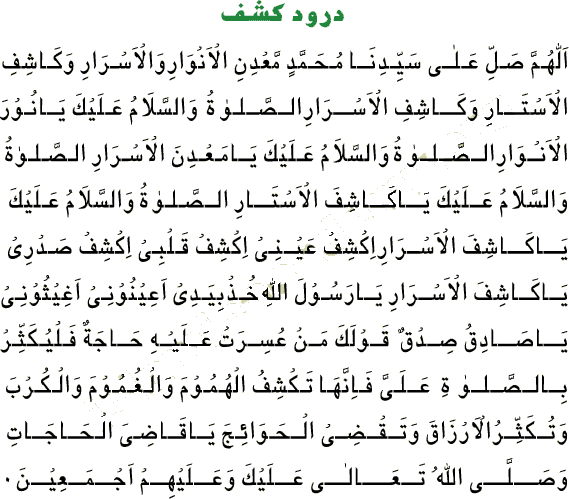 درود کشف
اَللّٰهُمَّ صَلِّ عَلٰی سَیِّدِنَا مُحَمَّدٍ مَّعْدِنِ الْاَنْوَارِ وَالْاَسْرَارِ وَکَاشِفِ
الْاَسْتَارِ وَکَاشِفِ الْاَسْرَارِ الصَّلوٰةُ وَالسَّلَامُ عَلَیْكَ یَانُوْرَ
الْاَنْوَارِ الصَّلوٰةُ وَالسَّلَامُ عَلَیْكَ یَامَعْدِنَ الْاَسْرَارِ الصَّلوٰةُ
وَالسَّلَامُ عَلَیْكَ یَاکَاشِفَ الْاَسْتَارِ الصَّلوٰةُ وَالسَّلَامُ عَلَیْكَ
یَاکَاشِفَ الْاَسْرَارِ اِکْشِفْ عَیْنِیْ اِکْشِفْ قَلْبِیْ اِکْشِفْ صَدْرِیْ
یَاکَاشِفَ الْاَسْرَارِ یَارَسُوْلَ اللّٰهِ خُذْبِیَدِیْ اَعِیْنُوْنِیْ اَغِیْثُوْنِیْ
یَاصَادِقُ صِدْقٌ قَوْلَكَ مَنْ عُسِرَتْ عَلَیْهِ حَاجَةٌ فَلْیُکَثِّرْ
بِالصَّلوٰةِ عَلَیَّ فَاِنَّهَا تَکْشِفُ الْهُمُوْمَ وَالْغُمُوْمَ وَالْکُرْبَ
وَتُکَثِّرُ الْاَرْزَاقَ وَتَقْضِیْ الْحَوَائِجَ یَاقَاضِیَ الْحَاجَاتِ
وَصَلَّی اللّٰهُ تَعَالٰی عَلَیْكَ وَعَلَیْهِمْ اَجْمَعِیْنَ۰